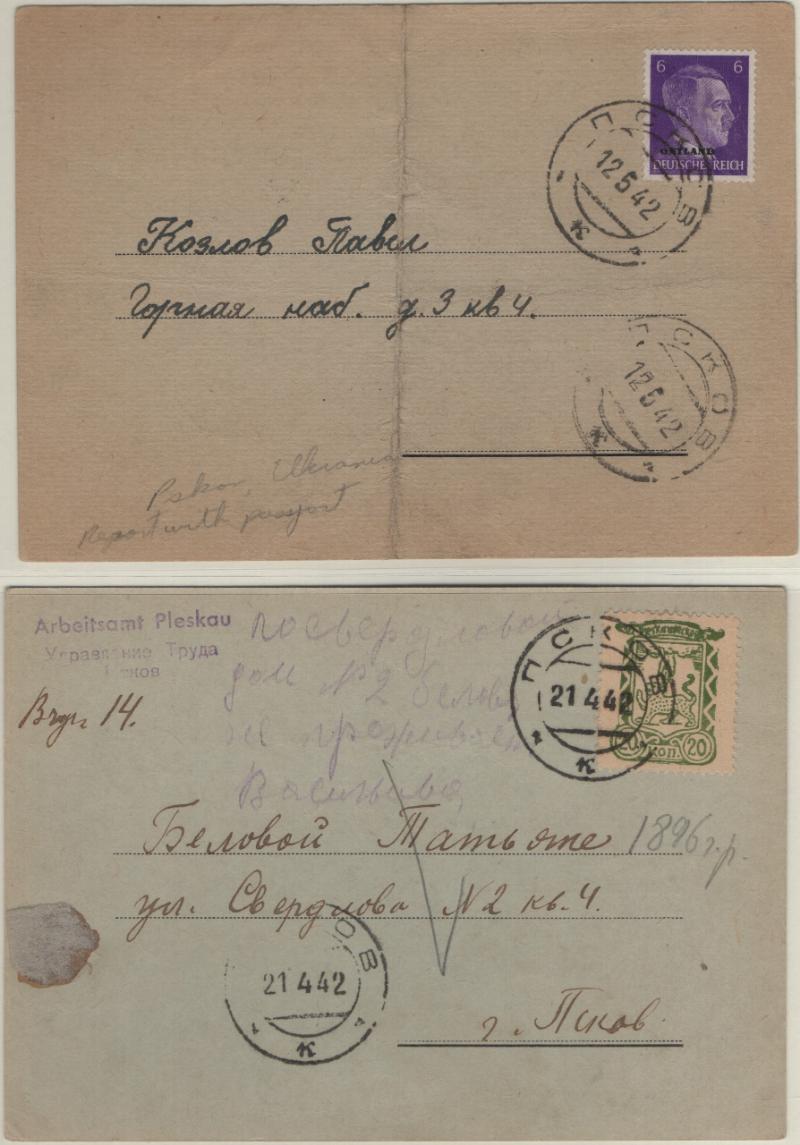 6 6
OSTLAND
DEUTSCHES REICH
ПСКОВ
12 5 42
к
Козлов Павел
Горная наб. д. 3 кв 4.
ПСКОВ
12 5 42
к
Pskov, Ukrania
Report with passport
Arbeitsamt Pleskau
Управление Труда
Псков
по Свердловой
дом №2 Белова
не проживает
Васильева
ПСКОВ
21 4 42
к
20 коп. 20
14.
Беловой Татьяне 1896 г.р.
ул. Свердлова №2 кв. 4.
ОВ
21 4 42
к
г. Псков.